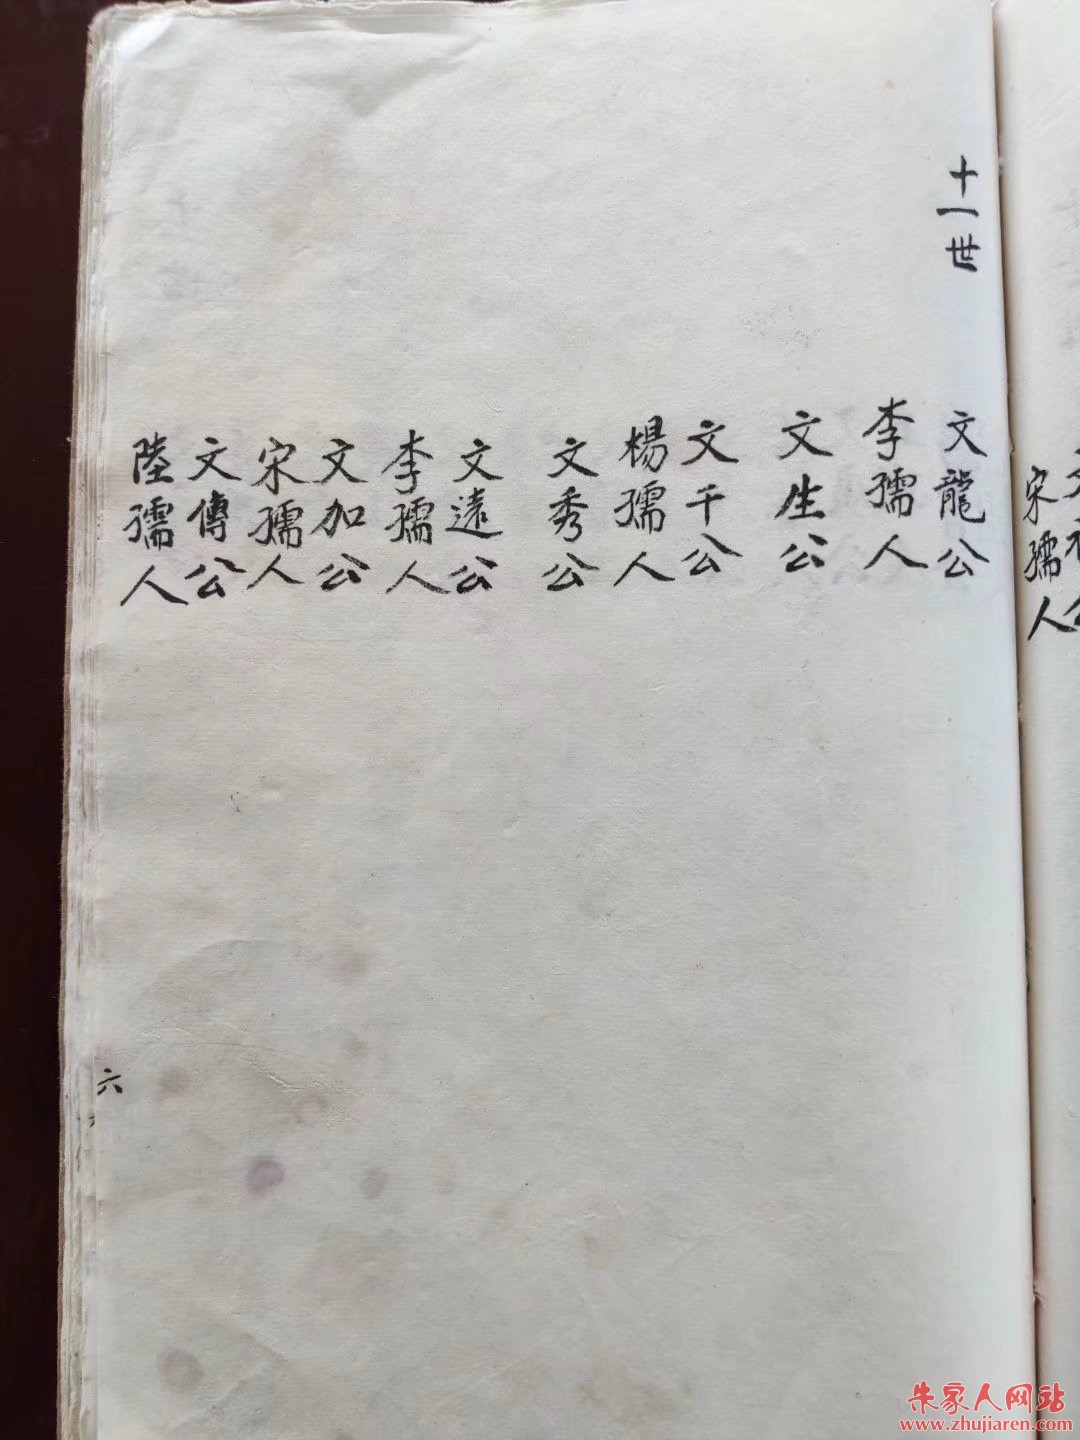 宋孺人
十一世
文龍公
李孺人
文生公
文千公
楊孺人
文秀公
文遠公
李孺人
文加公
宋孺人
文傳公
陸孺人
六
朱家人网站
www.zhujiaren.com